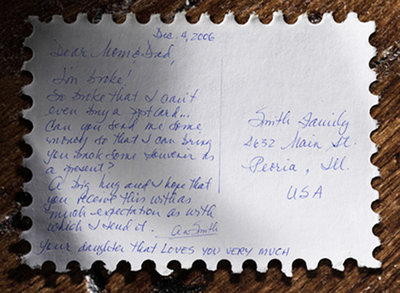 Dec. 4, 2006
Dear Mom & Dad,
I'm broke!
So broke that I can't
even buy a postcard...
Can you send me some
money so that I can bring
you back some souvenir as
a present?
A big hug and I hope that
you receive this with as
much expectation as with
which I send it. AW Smith
Your daughter that LOVES YOU VERY MUCH
Smith Family
2632 Main St.
Peoria, Ill.
USA